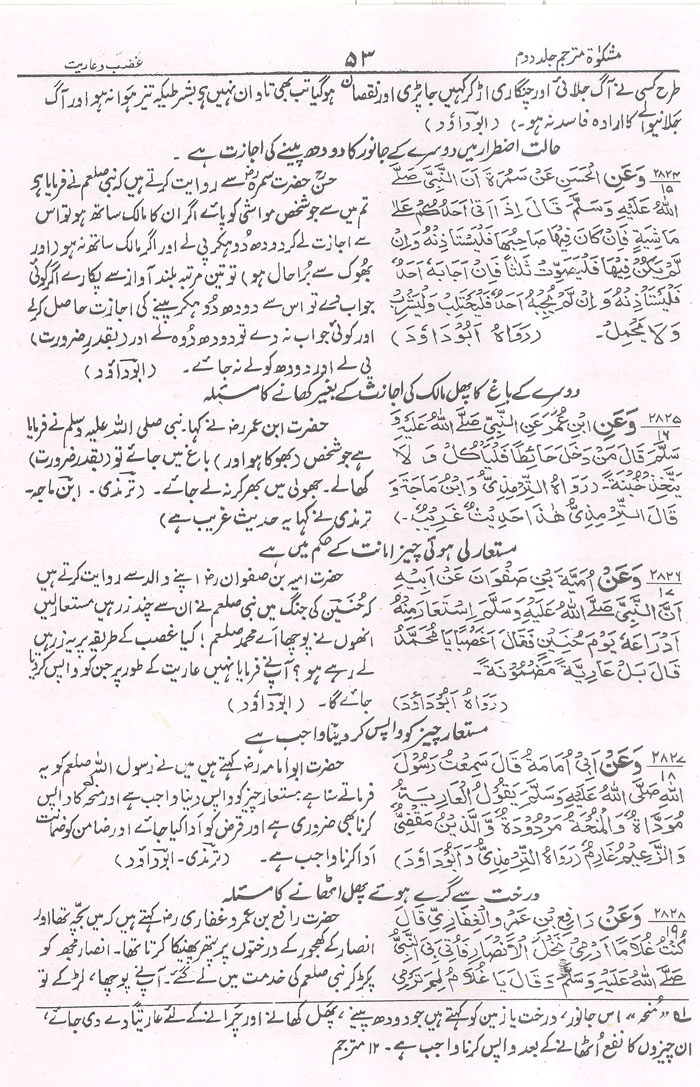 مشکوٰۃ مترجم جلد دوم
۵۳
غصب و عاریت
طرح کسی نے آگ جلائی اور چنگاری اڑ کر کہیں جا پڑی اور نقصان ہو گیا تب بھی تاوان نہیں ہے بشرطیکہ تیز ہوا نہ ہو اور آگ
جلانیوالے کا ارادہ فاسد نہ ہو۔) (ابوداؤد)
حالت اضطرار میں دوسرے کے جانور کا دودھ پینے کی اجازت ہے ۔
۲۸۲۴
۱۵
وَعَنِ الْحَسَنِ عَنْ سَمُرَةَ اَنَّ النَّبِیَّ صَلَّے
اللهُ عَلَيْهِ وَسَلَّمَ قَالَ اِذَا اَتٰی اَحَدُكُمْ عَلٰی
مَاشِيَةٍ فَاِنْ كَانَ فِيْهَا صَاحِبُهَا فَلْيَسْتَاْذِنْهُ وَاِنْ
لَّمْ يَكُنْ فِيْهَا فَلْيُصَوِّتْ ثَلٰثًا فَاِنْ اَجَابَهٗ اَحَدٌ
فَلْيَسْتَاْذِنْهُ وَاِنْ لَّمْ يُجِبْهُ اَحَدٌ فَلْيَحْتَلِبْ وَلْيَشْرَبْ
وَلَا يَحْمِلْ۔ (رَوَاهُ اَبُوْدَاوٗدَ)
حسنؓ حضرت سمرہؓ سے روایت کرتے ہیں کہ نبی صلعم نے فرمایا ہے
تم میں سے جو شخص مواشی کو پائے اگر ان کا مالک ساتھ ہو تو اس
سے اجازت لے کر دودھ دوہ کر پی لے اور اگر مالک ساتھ نہ ہو (اور
بھوک سے بُرا حال ہو) تو تین مرتبہ بلند آواز سے پکارے اگر کوئی
جواب دے تو اس سے دودھ دوہ کر پینے کی اجازت حاصل کرلے
اور کوئی جواب نہ دے تو دودھ دُوہ لے اور (بقدر ضرورت)
پی لے اور دودھ کو لے نہ جائے۔ (ابوداؤد)
دوسرے کے باغ کا پھل مالک کی اجازت کے بغیر کھانے کا مسئلہ
۲۸۲۵
۱۶
وَعَنِ ابْنِ عُمَرَ عَنِ النَّبِیِّ صَلَّے اللهُ عَلَيْهِ وَ
سَلَّمَ قَالَ مَنْ دَخَلَ حَائِطًا فَلْيَاْكُلْ وَ لَا
يَتَّخِذْ خُبْنَةً۔ (رَوَاهُ التِّرْمِذِیُّ وَابْنُ مَاجَةَ وَ
قَالَ التِّرْمِذِیُّ هٰذَا حَدِيْثٌ غَرِيْبٌ۔)
حضرت ابن عمرؓ نے کہا۔ نبی صلی اللہ علیہ وسلم نے فرمایا
ہے جو شخص (بھوکا ہو اور) باغ میں جائے تو (بقدر ضرورت)
کھالے۔ جھولی میں بھر کر نہ لے جائے۔ (ترمذی۔ ابن ماجہ۔
ترمذی نے کہا یہ حدیث غریب ہے)
مستعار لی ہوئی چیز امانت کے حکم میں ہے
۲۸۲۶
۱۷
وَعَنْ اُمَيَّةَ بْنِ صَفْوَانَ عَنْ اَبِيْهِ
اَنَّ النَّبِیَّ صَلَّے اللهُ عَلَيْهِ وَسَلَّمَ اِسْتَعَارَ مِنْهُ
اَدْرَاعَهٗ يَوْمَ حُنَيْنٍ فَقَالَ اَغَصْبًا يَا مُحَمَّدُ
قَالَ بَلْ عَارِيَةً مَّضْمُوْنَةً۔
(رَوَاهُ اَبُوْدَاوٗدَ)
حضرت امیہ بن صفوان رضا اپنے والد سے روایت کرتے ہیں
کہ حُنین کی جنگ میں نبی صلعم نے ان سے چند زرہیں مستعار لیں
انھوں نے پوچھا اے محمد صلعم! کیا غصب کے طریقہ پر یہ زرہیں
لے رہے ہو؟ آپ نے فرمایا نہیں عاریت کے طور پر جن کو واپس کر دیا
جائے گا۔ (ابوداؤد)
مستعار چیز کو واپس کر دینا واجب ہے
۲۸۲۷
۱۸
وَعَنْ اَبِیْ اُمَامَةَ قَالَ سَمِعْتُ رَسُوْلَ
اللهِ صَلَّی اللهُ عَلَيْهِ وَسَلَّمَ يَقُوْلُ الْعَارِيَةُ
مُؤَدَّاةٌ وَالْمِنْحَةُ مَرْدُوْدَةٌ وَّالدَّيْنُ مَقْضِیٌّ
وَالزَّعِيْمُ غَارِمٌ (رَوَاهُ التِّرْمِذِیُّ وَاَبُوْدَاوٗدَ)
حضرت ابو امامہ رضؓ کہتے ہیں میں نے رسول اللہ صلعم کو یہ
فرماتے سنا ہے مستعار چیز کو واپس دینا واجب ہے اور منحہ کا واپس
کرنا بھی ضروری ہے اور قرض کو ادا کیا جائے اور ضامن کو ضمانت
ادا کرنا واجب ہے۔ (ترمذی۔ ابوداؤد)
درخت سے گرے ہوئے پھل اٹھانے کا مسئلہ
۲۸۲۸
۱۹
وَعَنْ رَافِعِ بْنِ عَمْرٍو الْغِفَارِیِّ قَالَ
كُنْتُ غُلَامًا اَرْمِیْ نَخْلَ الْاَنْصَارِ فَاُتِیَ بِیَ النَّبِیُّ
صَلَّے اللهُ عَلَيْهِ وَسَلَّمَ وَقَالَ يَا غُلَامُ لِمَ تَرْمِی
حضرت رافع بن عمرو غفاری رضؓ کہتے ہیں کہ میں بچہ تھا اور
انصار کے کھجور کے درختوں پر پتھر پھینکا کرتا تھا۔ انصار مجھ کو
پکڑ کر نبی صلعم کی خدمت میں لے گئے۔ آپ نے پوچھا، لڑکے تو
لہ "مُنحہ" اس جانور، درخت یا زمین کو کہتے ہیں جو دودھ پینے، پھل کھانے اور چَرانے کے لئے عاریتاً دے دی جائے،
ان چیزوں کا نفع اُٹھانے کے بعد واپس کرنا واجب ہے۔ ۱۲ مترجم